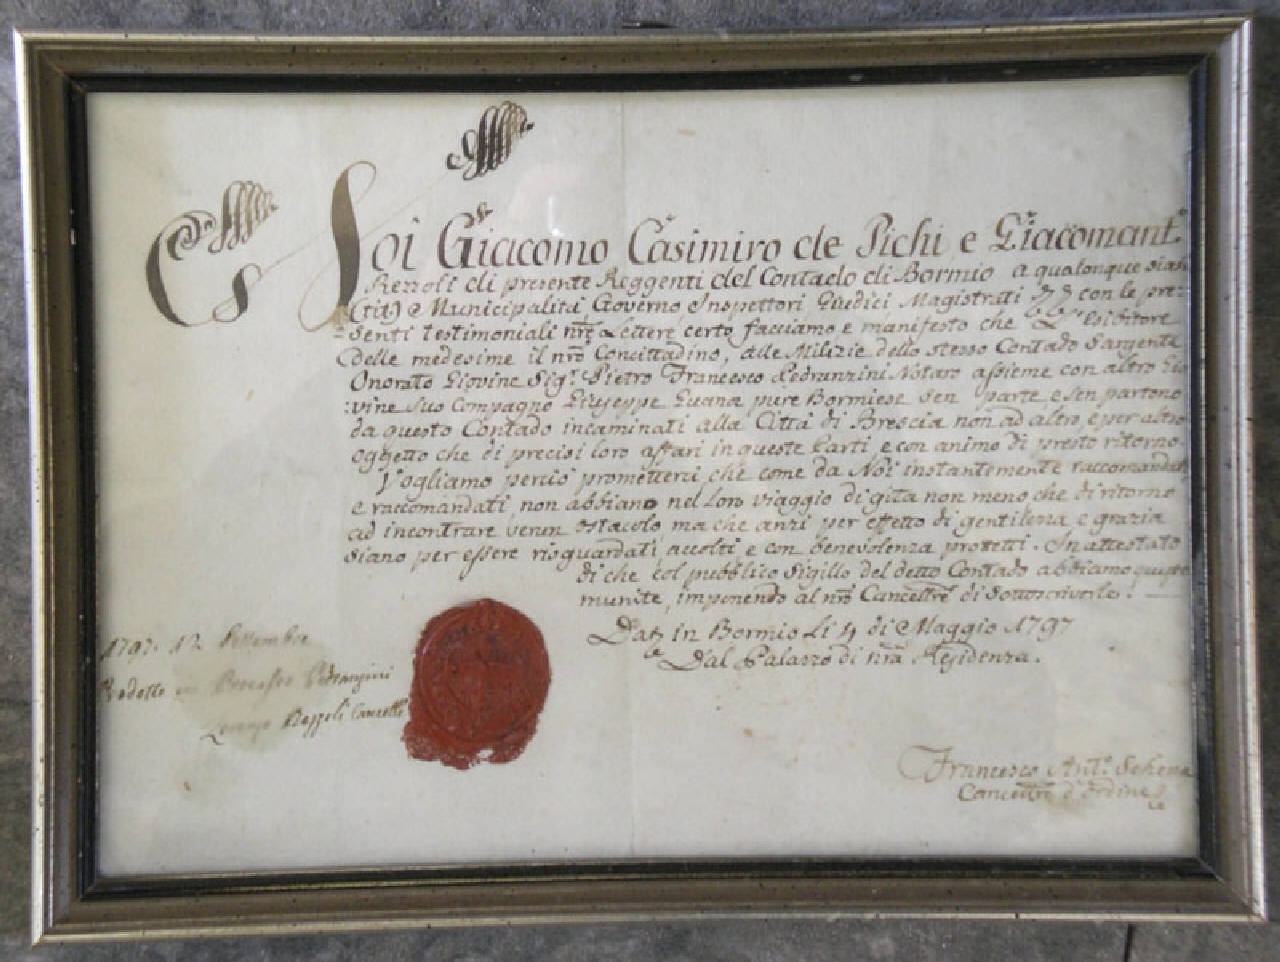 Noi Giacomo Casimiro de Pichi e Giacomant.º
di presente Reggenti del Contado di Bormio a qualonque siasi
(tit) e Municipalità, Governo Inspettori Giudici Magistrati con le pre=
=senti testimoniali nr̃e Lettere certo facciamo e manifesto che L'esibitore
delle medesime il nr̃o Concittadino, alle Milizie dello stesso Contado Sargente
Onorato Giovine Sig.r Pietro Francesco Pedranzini Notaro assieme con altro Gio
:vine suo Compagno Giuseppe pure Bormiese sen parte e sen partono
da questo Contado incaminati alla Città di Brescia non ad altro e per altro
oggetto che di precisi loro affari in queste Parti e con animo di presto ritorno.
Vogliamo perciò prometterci che come da Noi instantemente raccomandati
e raccomandati non abbiano nel loro viaggio di gita non meno che di ritorno
ad incontrare verun ostacolo, ma che anzi per effetto di gentilezza e grazia
siano per essere risguardati, accolti e con benevolenza protetti. In attestato
di che col pubblico Sigillo del detto Contado abbiamo
munite, imponendo al nr̃o Cancellr̃e di sottoscriverle.
Dat. in Bormio Li 4 di Maggio 1797
Dal Palazzo di nr̃a Residenza.
1797. 12 Settembre
Prodotto in Processo Pedranzini
Lorenzo Cancellr̃
Francesco Ant.º Schena
Cancellr̃e d'Ordine